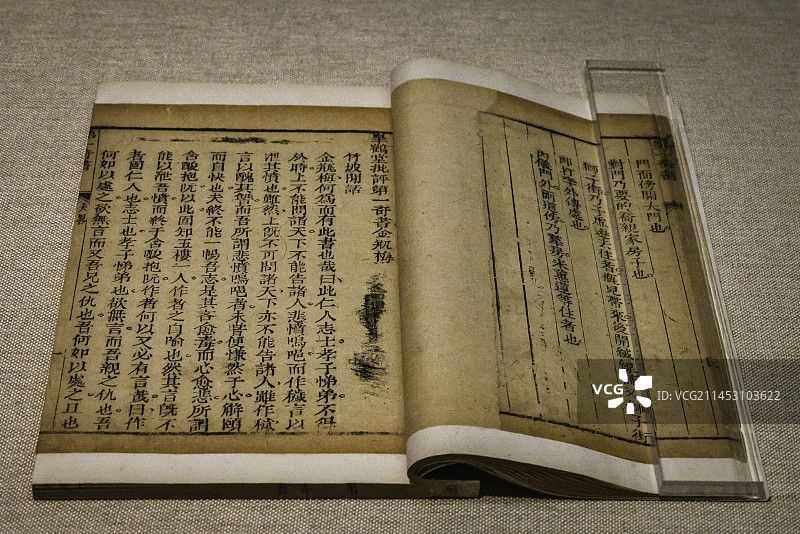 門面傍開大門也
對門乃要的喬親家房子也
獅子街乃子虛遷去住者瓶兒帶來後開絨線
獅子街
即打李外傳處也
內儀門外兩道傍乃羣房宋蕙蓮等住者也
皐鶴堂批評第一奇書金瓶梅
竹坡閒話
金瓶梅何為而有此書也哉曰此仁人志士孝子悌弟不得
於時上不能問諸天下不能告諸人悲憤嗚唈而作穢言以
泄其憤也雖然上既不可問諸天下亦不能告諸人雖作穢
言以醜其讐而吾所謂悲憤嗚唈者未嘗便慊然于心解頤
而自快也夫終不能一暢吾志是其言愈毒而心愈悲所謂
含酸抱阮以此固知玉樓一人作者之自喻也然其言既不
能以泄吾憤而終于含酸抱阮作者何以又必有言哉曰作
者固仁人也志士也孝子悌弟也欲無言而吾親之仇也吾
何如以處之欲無言而又吾兄之仇也吾何如以處之且也
第一奇書
VCG
VCG
ID: VCG211453103622